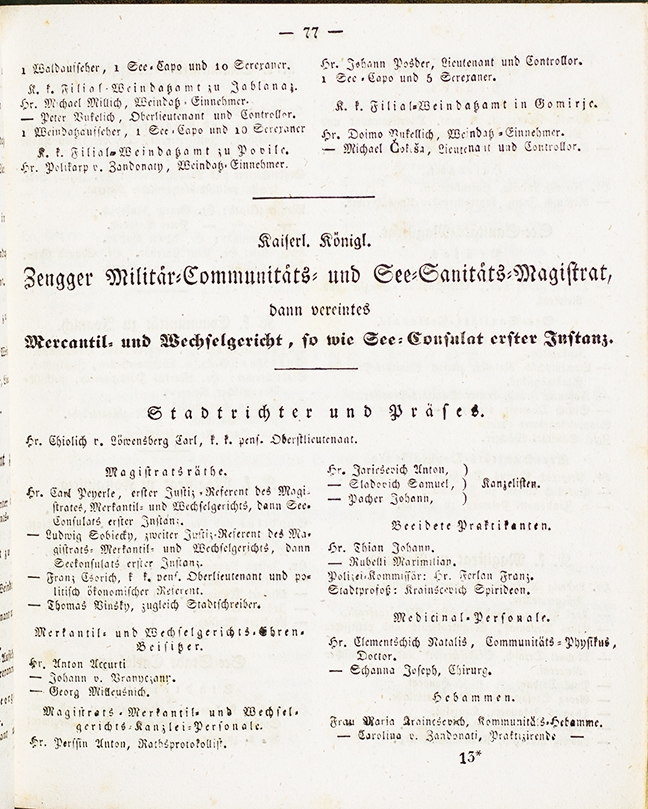 — 77 —
1 Waldaufseher, 1 See-Capo und 10 Serexaner.
K. k. Filial-Weindatzamt zu Jablanaz.
Hr. Michael Millich, Weindatz-Einnehmer.
— Peter Vukelich, Oberlieutenant und Controllor.
1 Weindatzaufseher, 1 See-Capo und 10 Serexaner
K. k. Filial-Weindatzamt zu Povile.
Hr. Polikarp v. Zandonaty, Weindatz-Einnehmer.
Hr. Johann Posder, Lieutenant und Controllor.
1 See-Capo und 5 Serexaner.
K. k. Filial-Weindatzamt in Gomirje.
Hr. Doimo Vukellich, Weindatz-Einnehmer.
— Michael Čokesa, Lieutenant und Controllor.
Kaiserl. Königl.
Zengger Militär-Communitäts- und See-Sanitäts-Magistrat,
dann vereintes
Mercantil- und Wechselgericht, so wie See-Consulat erster Instanz.
Stadtrichter und Präses.
Hr. Chiolich v. Löwensberg Carl, k. k. pens. Oberstlieutenant.
Magistratsräthe.
Hr. Carl Peyerle, erster Justiz-Referent des Magi-
strates, Merkantil- und Wechselgerichts, dann See-
Consulats erster Instanz.
— Ludwig Sobiecky, zweiter Justiz-Referent des Ma-
gistrats- Merkantil- und Wechselgerichts, dann
Seekonsulats erster Instanz.
— Franz Csorich, k. k. pens. Oberlieutenant und po-
litisch ökonomischer Referent.
— Thomas Vinsky, zugleich Stadtschreiber.
Merkantil- und Wechselgerichts-Ehren-
Beisitzer.
Hr. Anton Accurti
— Johann v. Vranyczany.
— Georg Milcusnich.
Magistrats-Merkantil- und Wechsel-
gerichts-Kanzlei-Personale.
Hr. Perssin Anton, Rathsprotokollist.
Hr. Jariesevich Anton, )
— Sladovich Samuel, ) Kanzelisten.
— Pacher Johann, )
Beeidete Praktikanten.
Hr. Thian Johann.
— Rubelli Maximilian.
Polizei-Kommissär: Hr. Ferlan Franz.
Stadtprofoß: Krainscevich Spirideon.
Medicinal-Personale.
Hr. Clementschich Natalis, Communitäts-Physikus,
Doctor.
— Schanna Joseph, Chirurg.
Hebammen.
Frau Maria Krainchevich, Kommunitäts-Hebamme.
— Carolina v. Zandonati, Praktizirende —
13*